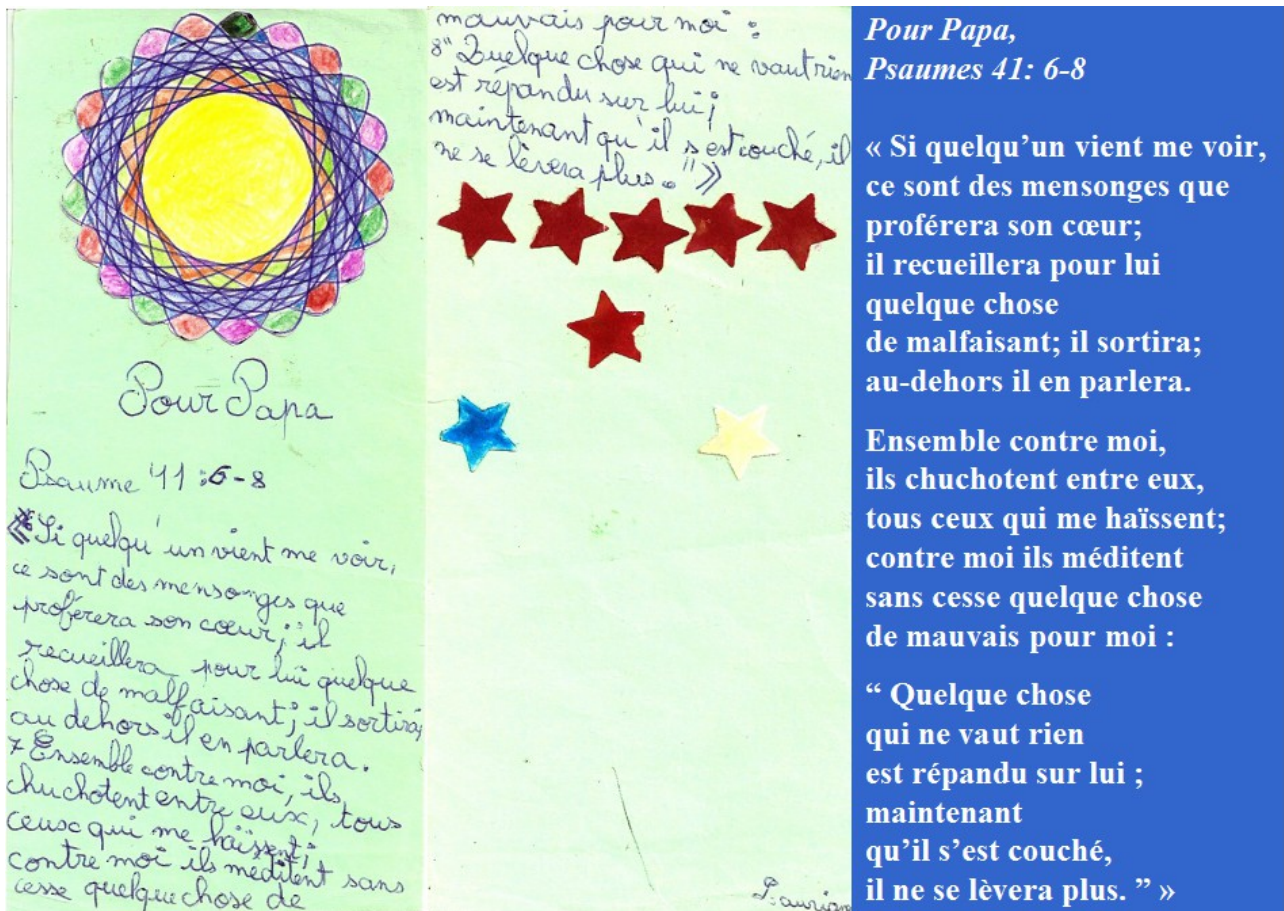 Pour Papa
Psaume 41 : 6-8
« Si quelqu'un vient me voir,
ce sont des mensonges que
proférera son cœur ; il
recueillera pour lui quelque
chose de malfaisant ; il sortira ;
au dehors il en parlera.
7 Ensemble contre moi, ils
chuchotent entre eux, tous
ceux qui me haïssent ;
contre moi ils méditent sans
cesse quelque chose de
mauvais pour moi :
8 " Quelque chose qui ne vaut rien
est répandu sur lui ;
maintenant qu'il s'est couché, il
ne se lèvera plus. " »
Pour Papa,
Psaumes 41: 6-8
« Si quelqu’un vient me voir,
ce sont des mensonges que
proférera son cœur;
il recueillera pour lui
quelque chose
de malfaisant; il sortira;
au-dehors il en parlera.
Ensemble contre moi,
ils chuchotent entre eux,
tous ceux qui me haïssent;
contre moi ils méditent
sans cesse quelque chose
de mauvais pour moi :
“ Quelque chose
qui ne vaut rien
est répandu sur lui ;
maintenant
qu’il s’est couché,
il ne se lèvera plus. ” »